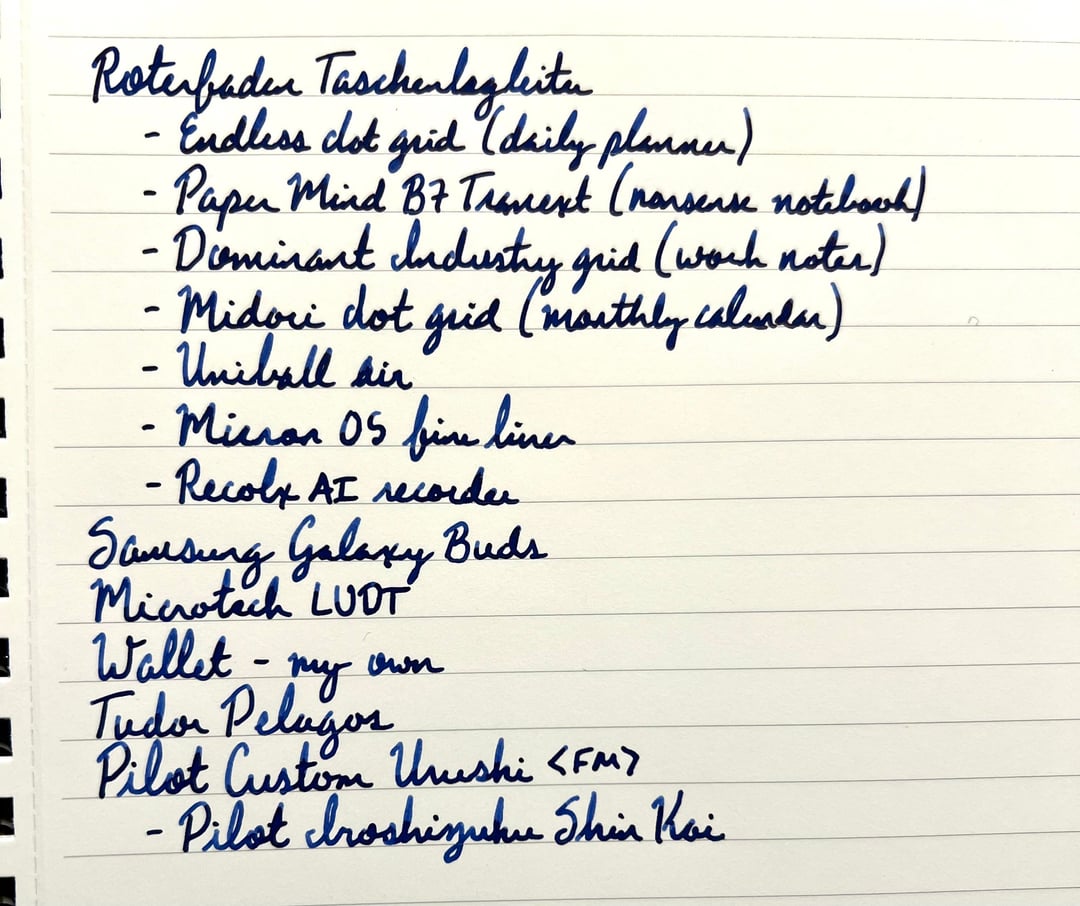 Roterfaden Taschenbegleiter
- Endless dot grid (daily planner)
- Paper Mind B7 Tranext (nonsense notebook)
- Dominant Industry grid (work notes)
- Midori dot grid (monthly calendar)
- Uniball air
- Micron 05 fine liner
- Recolx AI recorder
Samsung Galaxy Buds
Microtech LUDT
Wallet - my own
Tudor Pelagos
Pilot Custom Urushi <FM>
- Pilot Iroshizuku Shin Kai